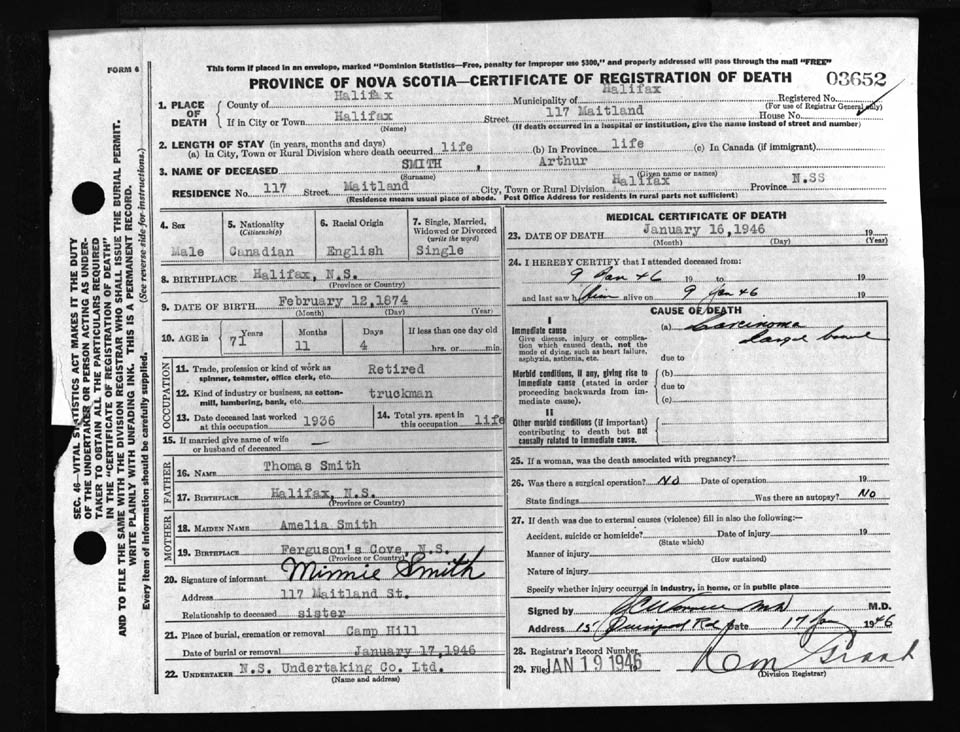 FORM 6
This form if placed in an envelope, marked "Dominion Statistics—Free, penalty for improper use $300," and properly addressed will pass through the mail "FREE"
PROVINCE OF NOVA SCOTIA—CERTIFICATE OF REGISTRATION OF DEATH 03652
1. PLACE OF DEATH
County of Halifax Municipality of Halifax Registered No.
(For use of Registrar General only)
If in City or Town Halifax Street 117 Maitland House No.
(Name) (If death occurred in a hospital or institution, give the name instead of street and number)
2. LENGTH OF STAY (in years, months and days)
(a) In City, Town or Rural Division where death occurred life (b) In Province life (c) In Canada (if immigrant)
3. NAME OF DECEASED SMITH, Arthur
(Surname) (Given name or names)
RESIDENCE No. 117 Street Maitland City, Town or Rural Division Halifax Province N.SS
(Residence means usual place of abode. Post Office Address for residents in rural parts not sufficient)
4. Sex 5. Nationality (Citizenship) 6. Racial Origin 7. Single, Married, Widowed or Divorced (write the word)
Male Canadian English Single
8. BIRTHPLACE Halifax, N.S.
(Province or Country)
9. DATE OF BIRTH February 12,1874
(Month) (Day) (Year)
10. AGE in Years Months Days If less than one day old
71 11 4 hrs. or min.
OCCUPATION
11. Trade, profession or kind of work as spinner, teamster, office clerk, etc. Retired
12. Kind of industry or business, as cotton-mill, lumbering, bank, etc. truckman
13. Date deceased last worked at this occupation 1936 14. Total yrs. spent in this occupation life
15. If married give name of wife or husband of deceased —
FATHER
16. NAME Thomas Smith
17. BIRTHPLACE Halifax, N.S.
(Province or Country)
MOTHER
18. MAIDEN NAME Amelia Smith
19. BIRTHPLACE Ferguson's Cove, N.S.
(Province or Country)
20. Signature of informant Minnie Smith
Address 117 Maitland St.
Relationship to deceased sister
21. Place of burial, cremation or removal Camp Hill
Date of burial or removal January 17,1946
22. UNDERTAKER N.S. Undertaking Co. Ltd.
(Name and address)
MEDICAL CERTIFICATE OF DEATH
23. DATE OF DEATH January 16,1946 19
(Month) (Day) (Year)
24. I HEREBY CERTIFY that I attended deceased from:
9 Jan 46 19
and last saw him alive on 9 Jan 46 19
CAUSE OF DEATH
I
Immediate cause (a) Carcinoma
Give disease, injury or complication which caused death, not the mode of dying, such as heart failure, asphyxia, asthenia, etc. Large bowel
due to
Morbid conditions, if any, giving rise to immediate cause (stated in order proceeding backwards from immediate cause). (b)
due to
(c)
II
Other morbid conditions (if important) contributing to death but not causally related to immediate cause.
25. If a woman, was the death associated with pregnancy?
26. Was there a surgical operation? No Date of operation 19
State findings Was there an autopsy? No
27. If death was due to external causes (violence) fill in also the following:—
Accident, suicide or homicide? Date of injury 19
(State which)
Manner of injury
(How sustained)
Nature of injury
Specify whether injury occurred in industry, in home, or in public place
Signed by M.D.
Address 15 Rd Date 17 Jan 1946
28. Registrar's Record Number
29. Filed JAN 19 1946
(Division Registrar)
SEC. 46—VITAL STATISTICS ACT MAKES IT THE DUTY
OF THE UNDERTAKER OR PERSON ACTING AS UNDER-
TAKER TO OBTAIN ALL THE PARTICULARS REQUIRED
IN THE "CERTIFICATE OF REGISTRATION OF DEATH"
AND TO FILE THE SAME WITH THE DIVISION REGISTRAR WHO SHALL ISSUE THE BURIAL PERMIT.
WRITE PLAINLY WITH UNFADING INK. THIS IS A PERMANENT RECORD.
Every item of information should be carefully supplied. (See reverse side for instructions.)